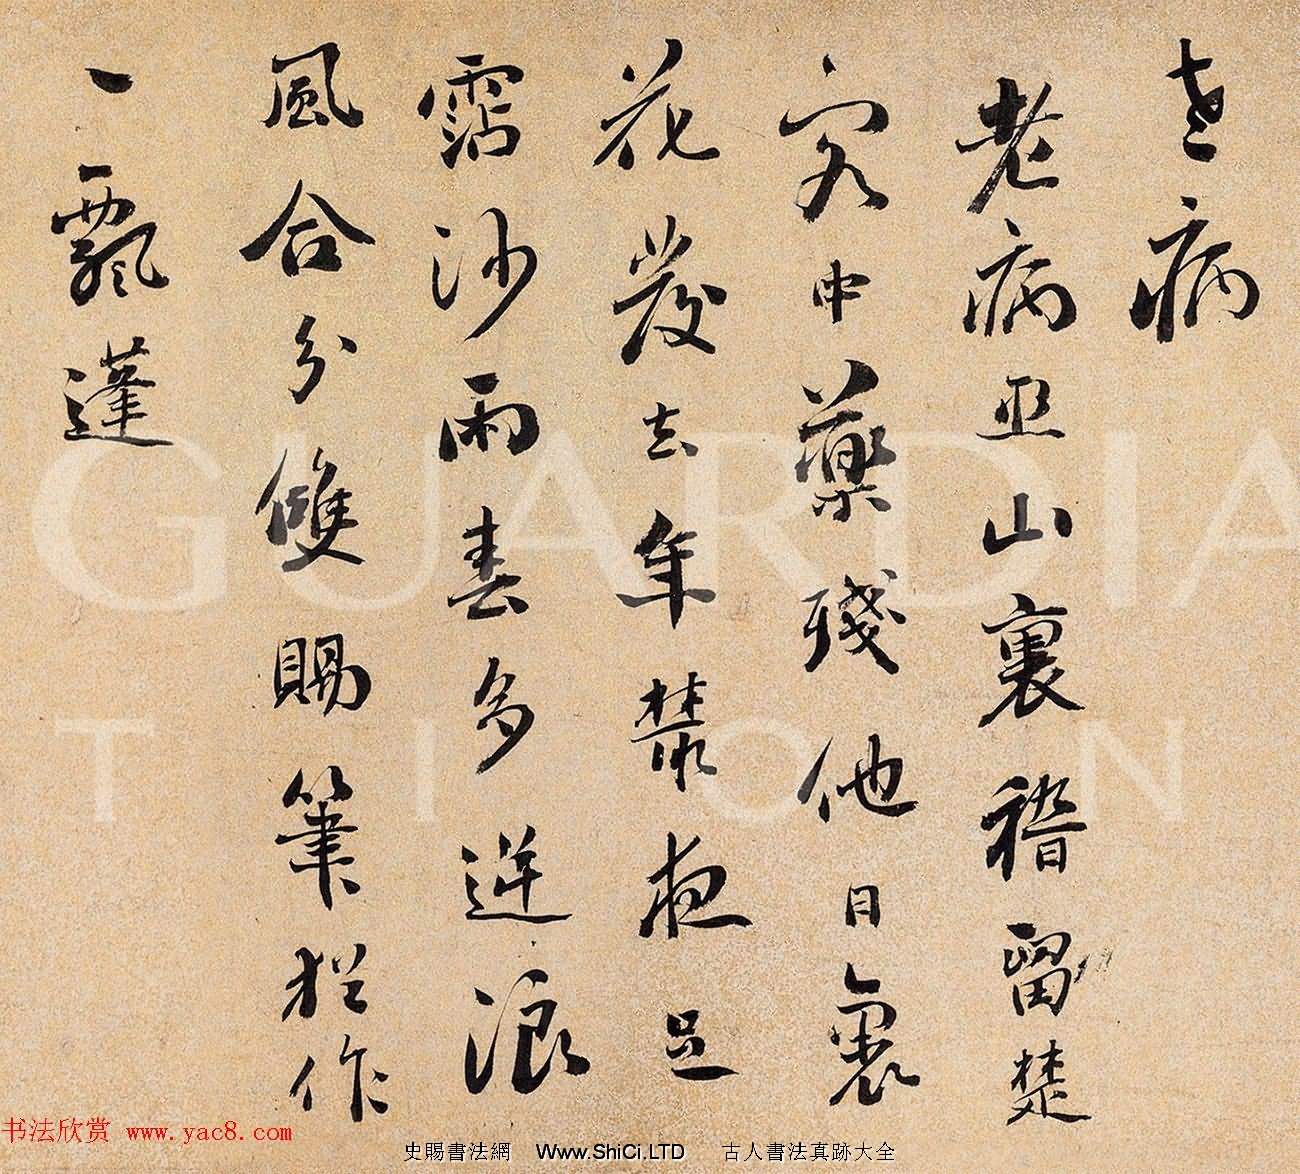 老病
老病巫山裏稽留楚
客中藥殘他日裹
花發去年叢夜足
霑沙雨春多逆浪
風合分雙賜筆猶作
一飄蓬
GUARDIA
TION
书法欣赏 www.yac8.com
史賜書法網 Www.ShiCi.LTD 古人書法真跡大全